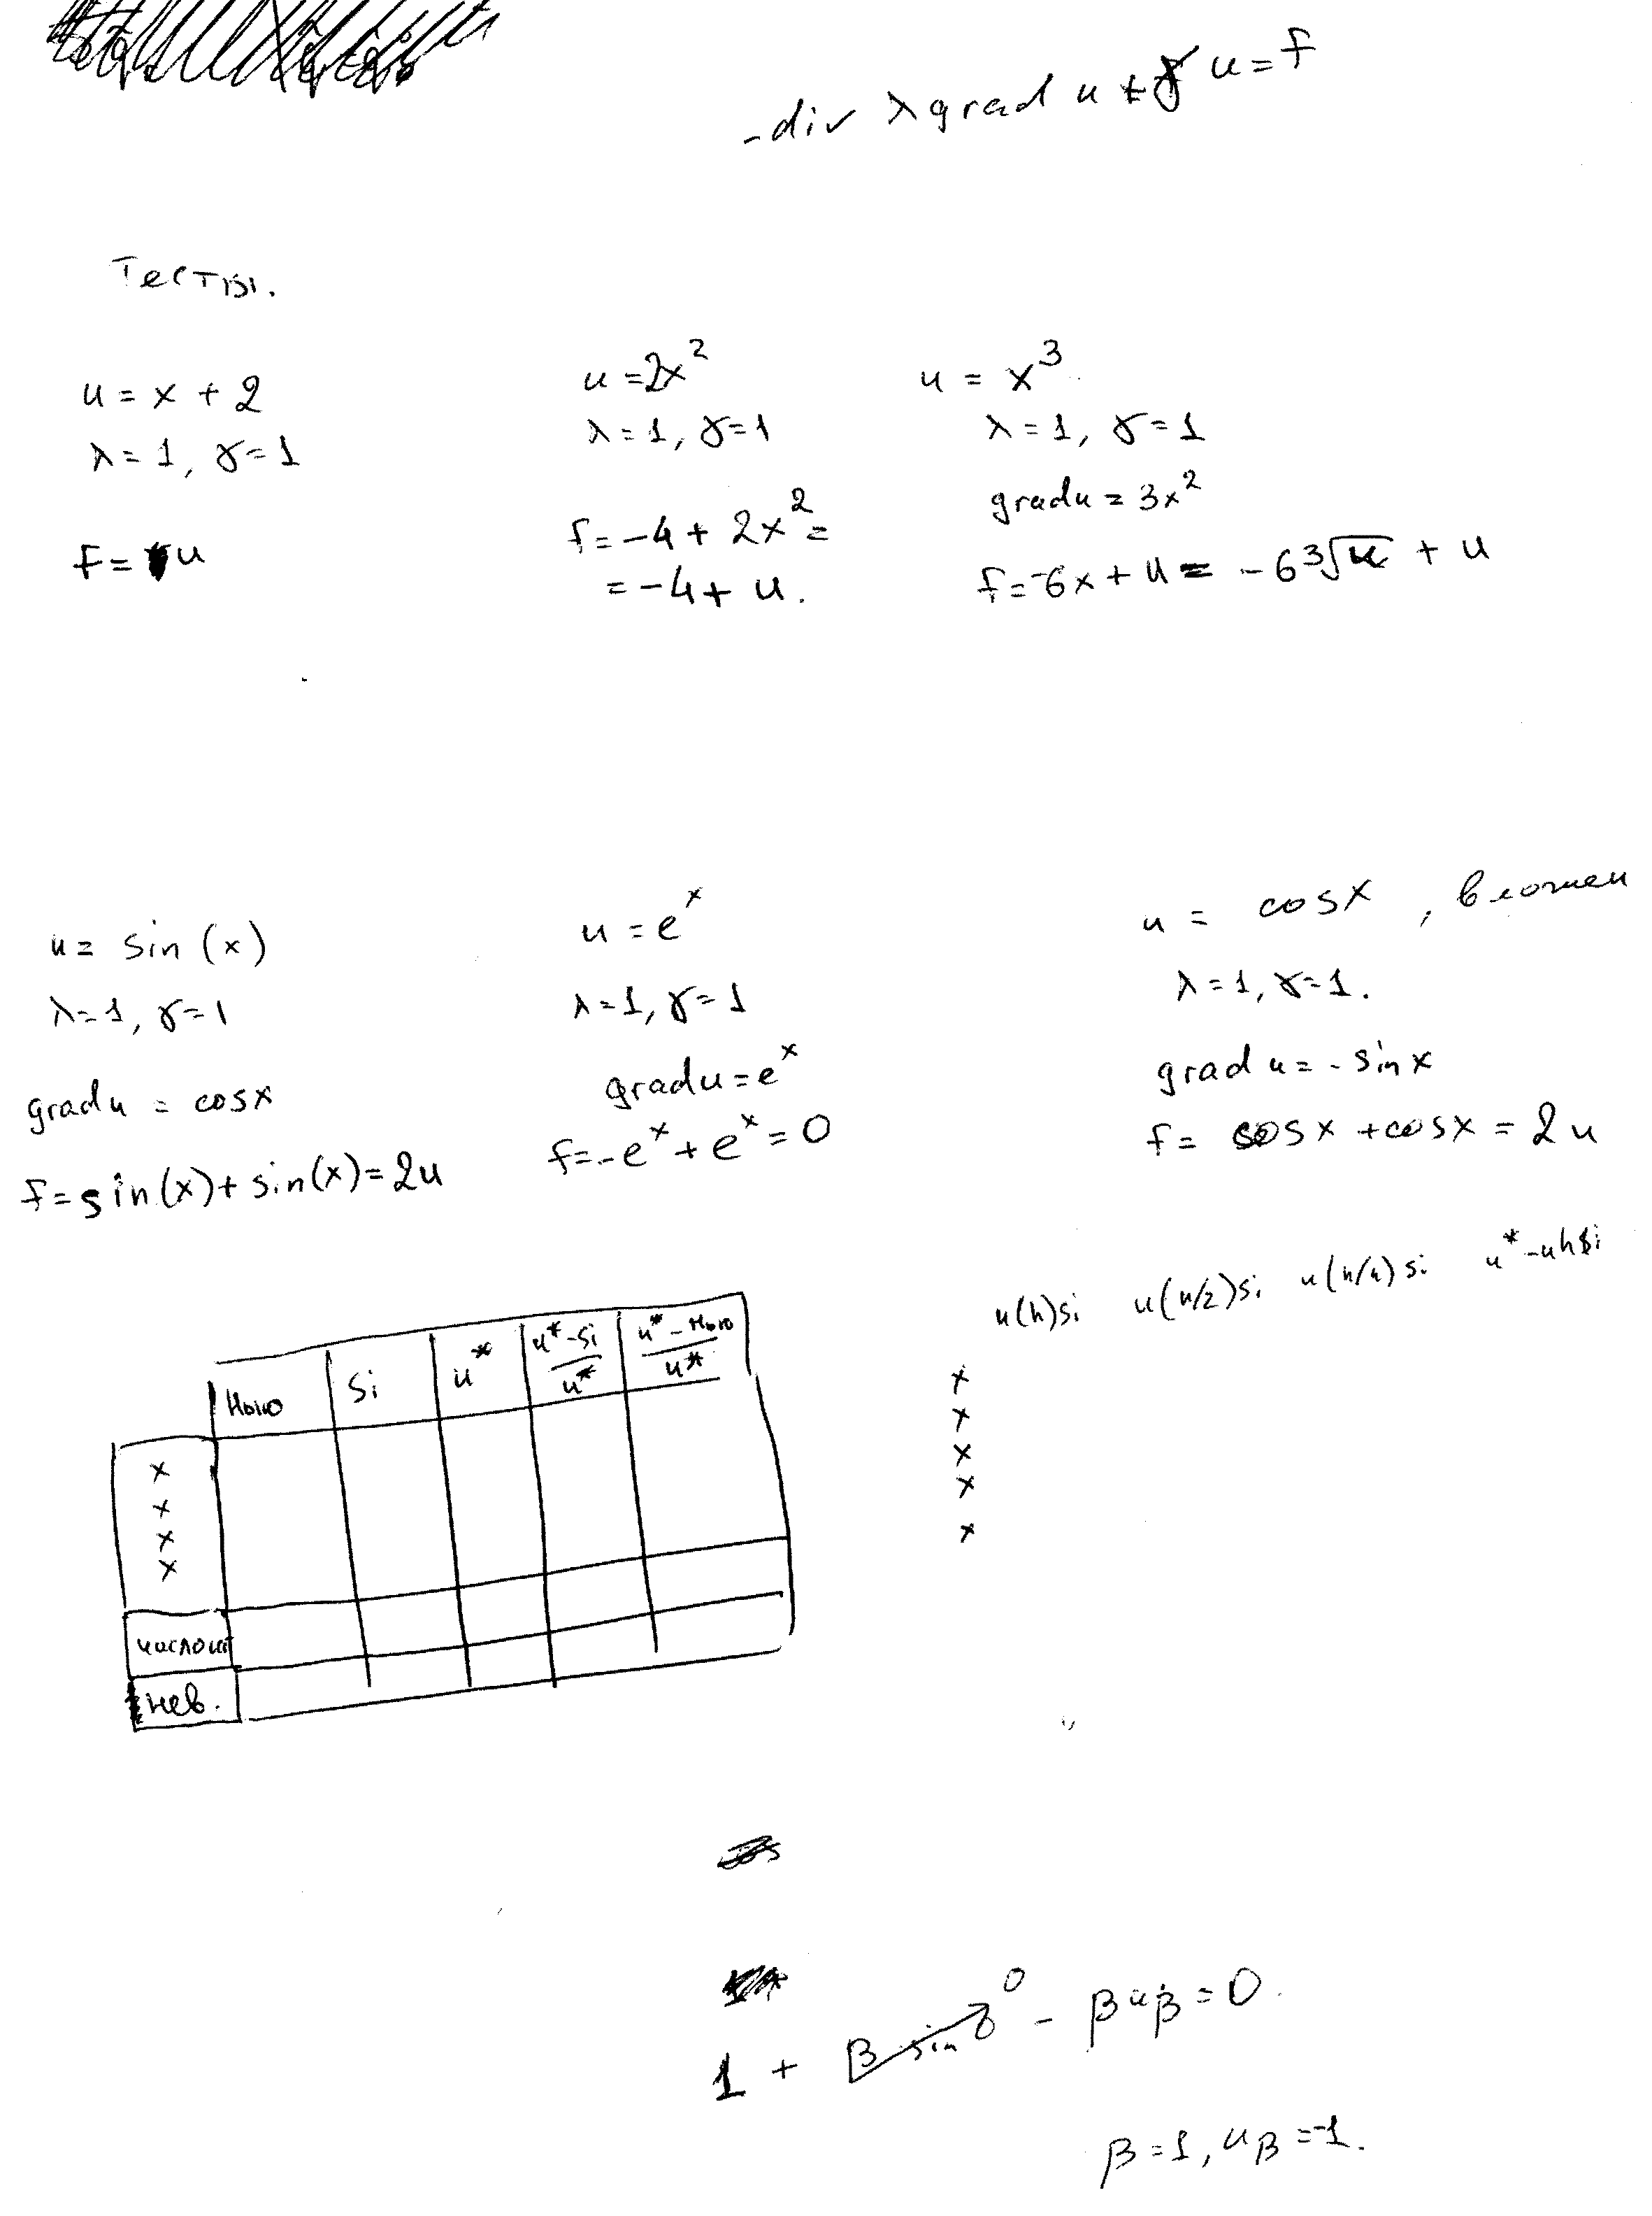 -div λ grad u + γ u = f
Тесты.
u = x + 2
λ = 1, γ = 1
f = u
u = 2x²
λ = 1, γ = 1
f = -4 + 2x² =
= -4 + u.
u = x³
λ = 1, γ = 1
grad u = 3x²
f = -6x + u = -6 ³√u + u
u = sin (x)
λ = 1, γ = 1
grad u = cos x
f = sin(x) + sin(x) = 2u
u = e^x
λ = 1, γ = 1
grad u = e^x
f = -e^x + e^x = 0
u = cos x ,
λ = 1, γ = 1.
grad u = - sin x
f = cos x + cos x = 2u
Нью Si u* (u* - Si)/u* (u* - Нью)/u*
x
x
x
x
число ит
нев.
u(h)si u(h/2)si u(h/4)si u* - uhsi
x
x
x
x
x
1 + β sin 0 0 - β u β = 0.
β = 1, uβ = -1.